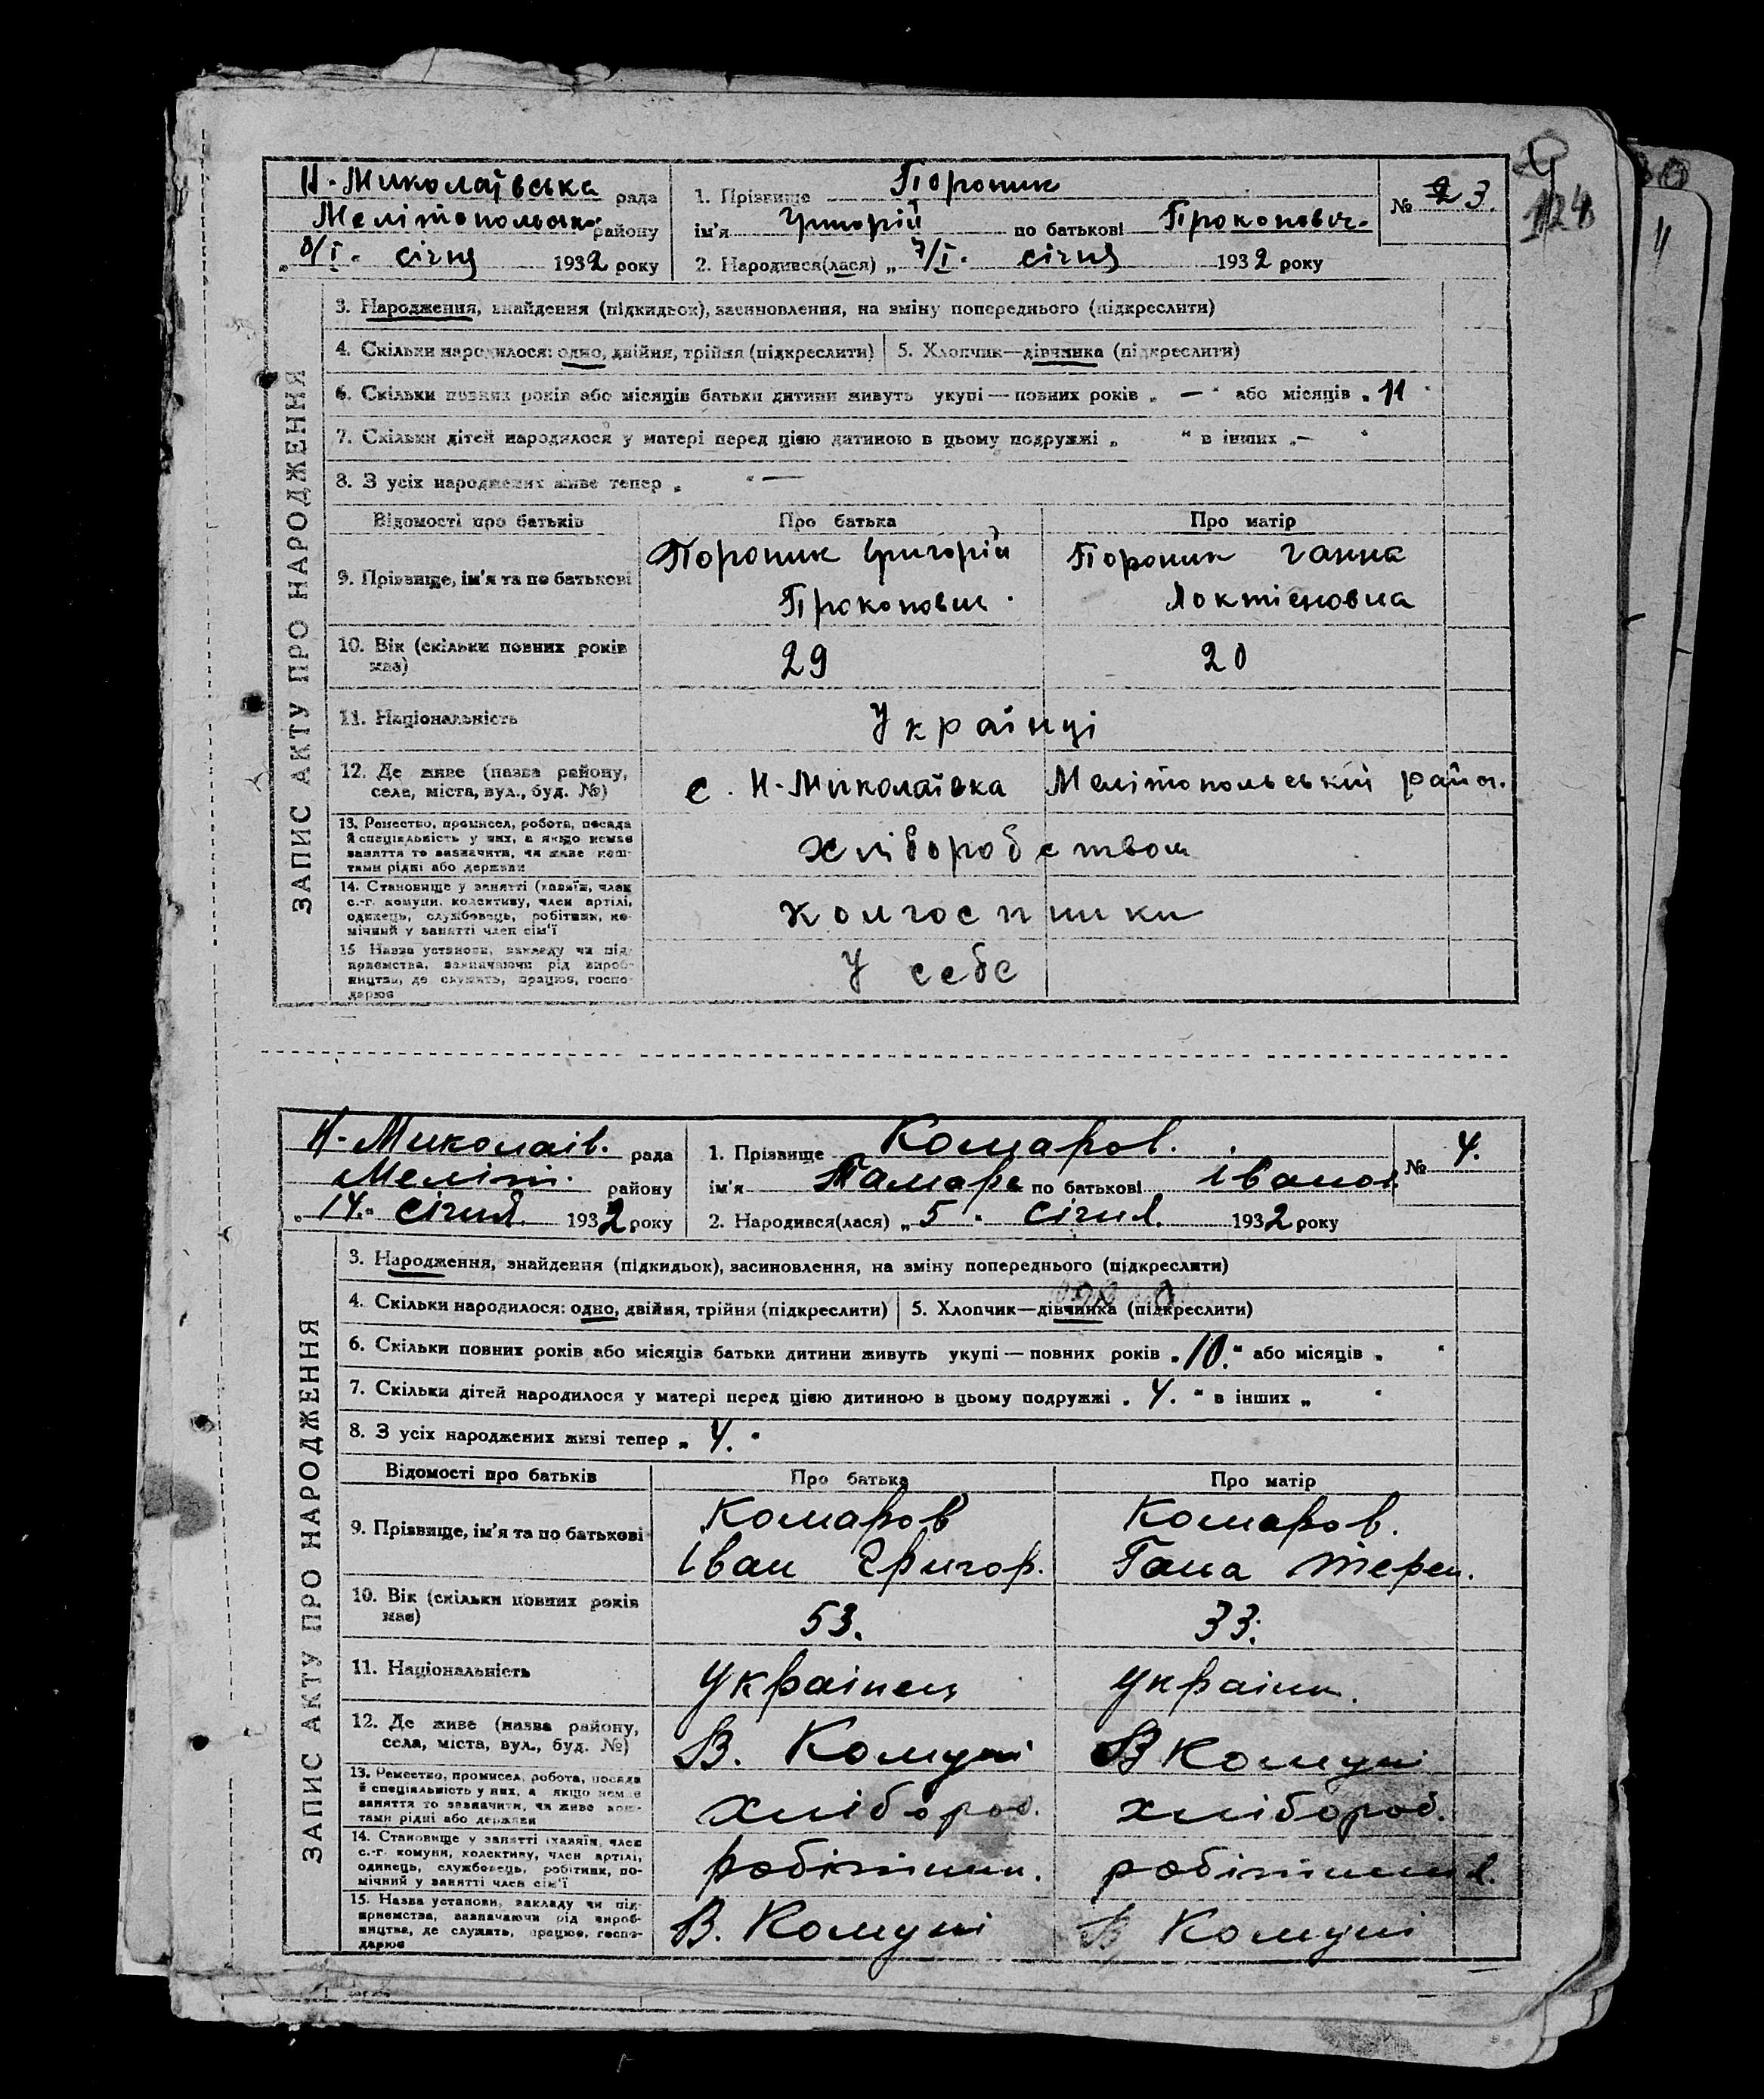 Н-Миколаївська рада
Мелітопольськ. району
8/І. січня 1932 року
1. Прізвище Пороник
ім'я Григорій по батькові Прокопович.
2. Народився(лася) „ 7/І. січня 1932 року
№ 23.
124
ЗАПИС АКТУ ПРО НАРОДЖЕННЯ
3. Народження, знайдення (підкидьок), засиновлення, на зміну попереднього (підкреслити)
4. Скільки народилося: одно, двійня, трійня (підкреслити) 5. Хлопчик—дівчинка (підкреслити)
6. Скільки повних років або місяців батьки дитини живуть укупі — повних років „ — “ або місяців „ 11 “
7. Скільки дітей народилося у матері перед цією дитиною в цьому подружжі „ “ в інших „ — “
8. З усіх народжених живе тепер „ “ —
Відомості про батьків Про батька Про матір
9. Прізвище, ім'я та по батькові Пороник Григорій Пороник Ганна
Прокопович. Локтіоновна
10. Вік (скільки повних років має) 29 20
11. Національність Українці
12. Де живе (назва району, села, міста, вул., буд. №) с. Н-Миколаївка Мелітопольський район.
13. Ремество, промисел, робота, посада
й спеціяльність у них, а якщо немає
заняття то зазначити, чи живе кош-
тами рідні або держави
хліборобством
14. Становище у занятті (хазяїн, член
с.-г. комуни, колективу, член артілі,
одинець, службовець, робітник, по-
мічний у занятті член сім'ї
колгоспники
15 Назва установи, закладу чи під-
приємства, зазначаючи рід вироб-
ництва, де служить, працює, госпо-
дарює
У себе
Н-Миколаів. рада
Меліт. району
„ 14. “ січня. 1932 року
1. Прізвище Комаров.
ім'я Тамара по батькові Іванов.
2. Народився(лася) „ 5 “ січня. 1932 року
№ 4.
ЗАПИС АКТУ ПРО НАРОДЖЕННЯ
3. Народження, знайдення (підкидьок), засиновлення, на зміну попереднього (підкреслити)
4. Скільки народилося: одно, двійня, трійня (підкреслити) 5. Хлопчик—дівчинка (підкреслити)
6. Скільки повних років або місяців батьки дитини живуть укупі — повних років „ 10. “ або місяців „ “
7. Скільки дітей народилося у матері перед цією дитиною в цьому подружжі „ 4. “ в інших „ “
8. З усіх народжених живі тепер „ 4. “
Відомості про батьків Про батька Про матір
9. Прізвище, ім'я та по батькові Комаров Комаров.
Іван Григор. Гана Терен.
10. Вік (скільки повних років має) 53. 33.
11. Національність Українець Україн.
12. Де живе (назва району, села, міста, вул., буд. №) В. Комуні В Комуні
13. Ремество, промисел, робота, посада
й спеціяльність у них, а якщо немає
заняття то зазначити, чи живе кош-
тами рідні або держави
хлібороб. хлібороб.
14. Становище у занятті (хазяїн, член
с.-г. комуни, колективу, член артілі,
одинець, службовець, робітник, по-
мічний у занятті член сім'ї
робітник.
15. Назва установи, закладу чи під-
приємства, зазначаючи рід вироб-
ництва, де служить, працює, госпо-
дарює
В. Комуні В Комуні